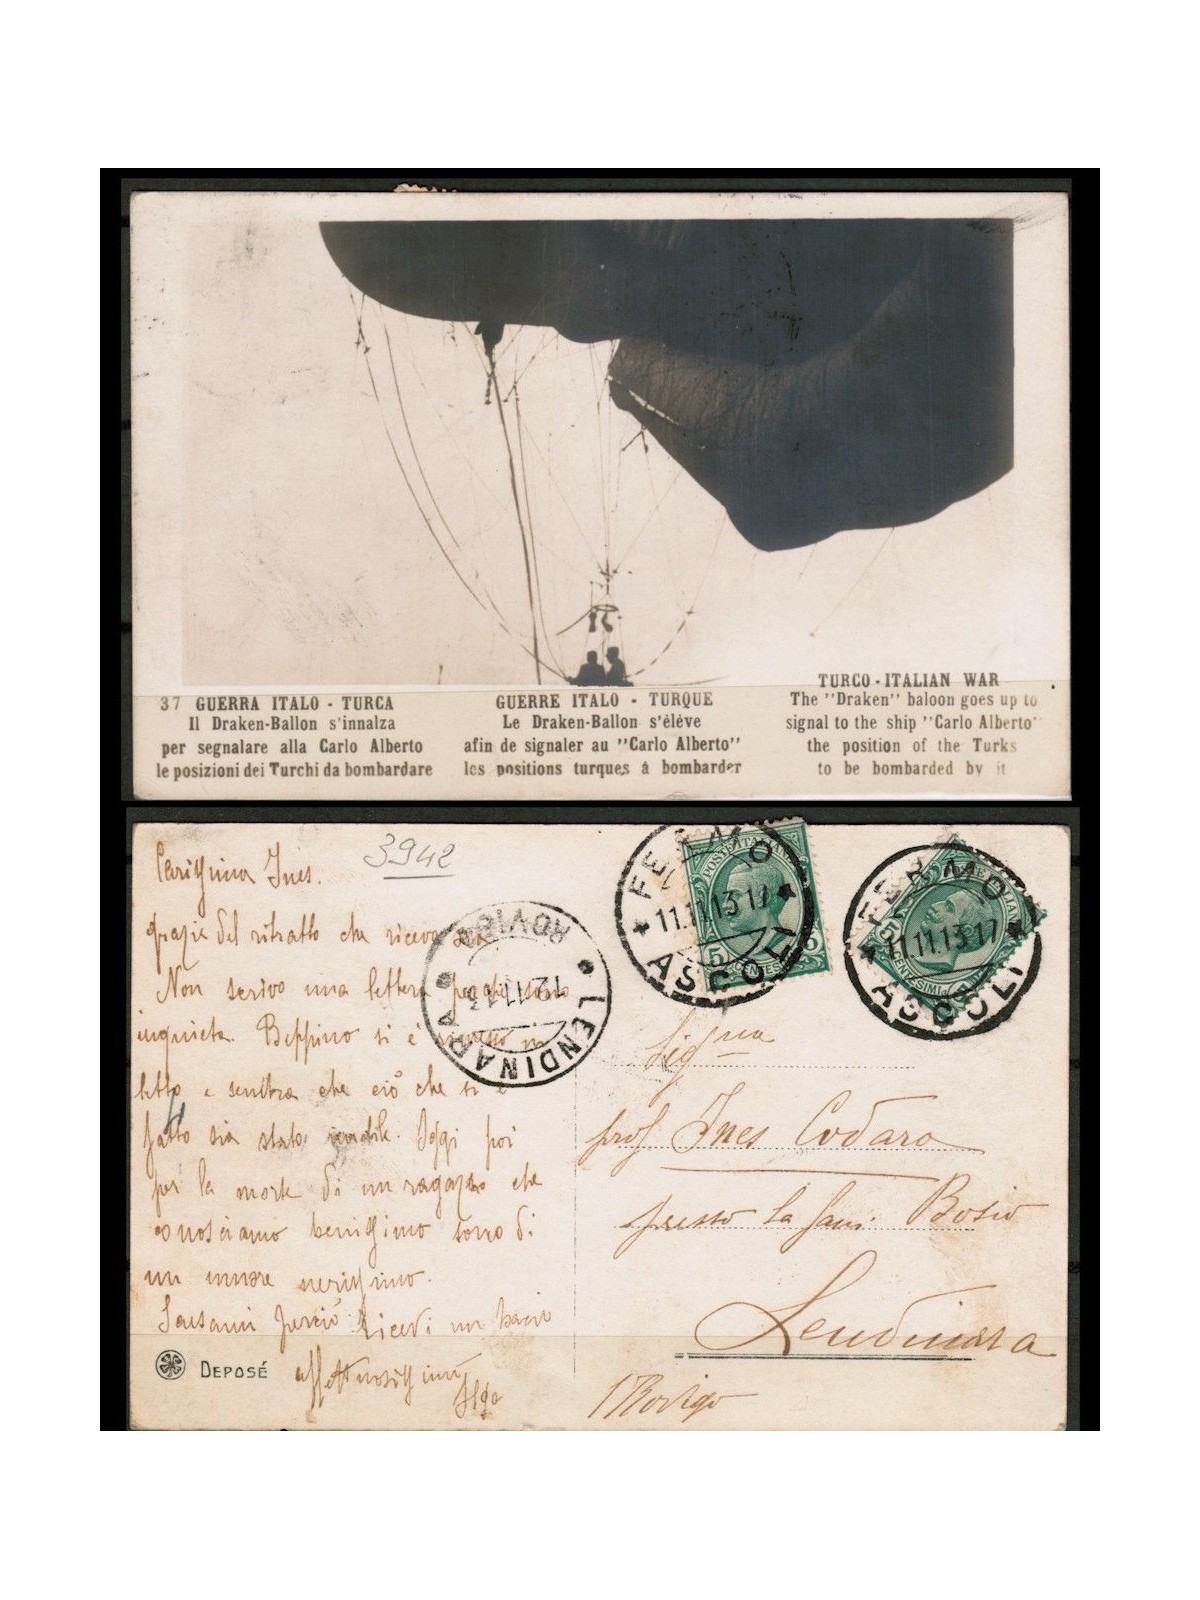 37 GUERRA ITALO - TURCA
Il Draken-Ballon s'innalza
per segnalare alla Carlo Alberto
le posizioni dei Turchi da bombardare
GUERRE ITALO - TURQUE
Le Draken-Ballon s'élève
afin de signaler au "Carlo Alberto"
les positions turques à bombarder
TURCO - ITALIAN WAR
The "Draken" baloon goes up to
signal to the ship "Carlo Alberto"
the position of the Turks
to be bombarded by it
3942
Carissima Ines.
grazie del ritratto che ricevo
Non scrivo una lettera perché sono
inquieta. Beppino si è
letto e sembra che ciò che si è
fatto sia stato inutile. Oggi poi
per la morte di un ragazzo che
conosciamo benissimo sono di
un umore nerissimo.
perciò. Ricevi un bacio
affettuosissimo
DEPOSÉ
LENDINARA
ROVIGO
12.11.13
POSTE ITALIANE
5 CENTESIMI 5
FERMO
11.11.13.17
ASCOLI
POSTE ITALIANE
5 CENTESIMI 5
FERMO
11.11.13.17
ASCOLI
Sigᵐᵃ
prof Ines Codaro
presso la fam: Bosio
Lendinara
Rovigo